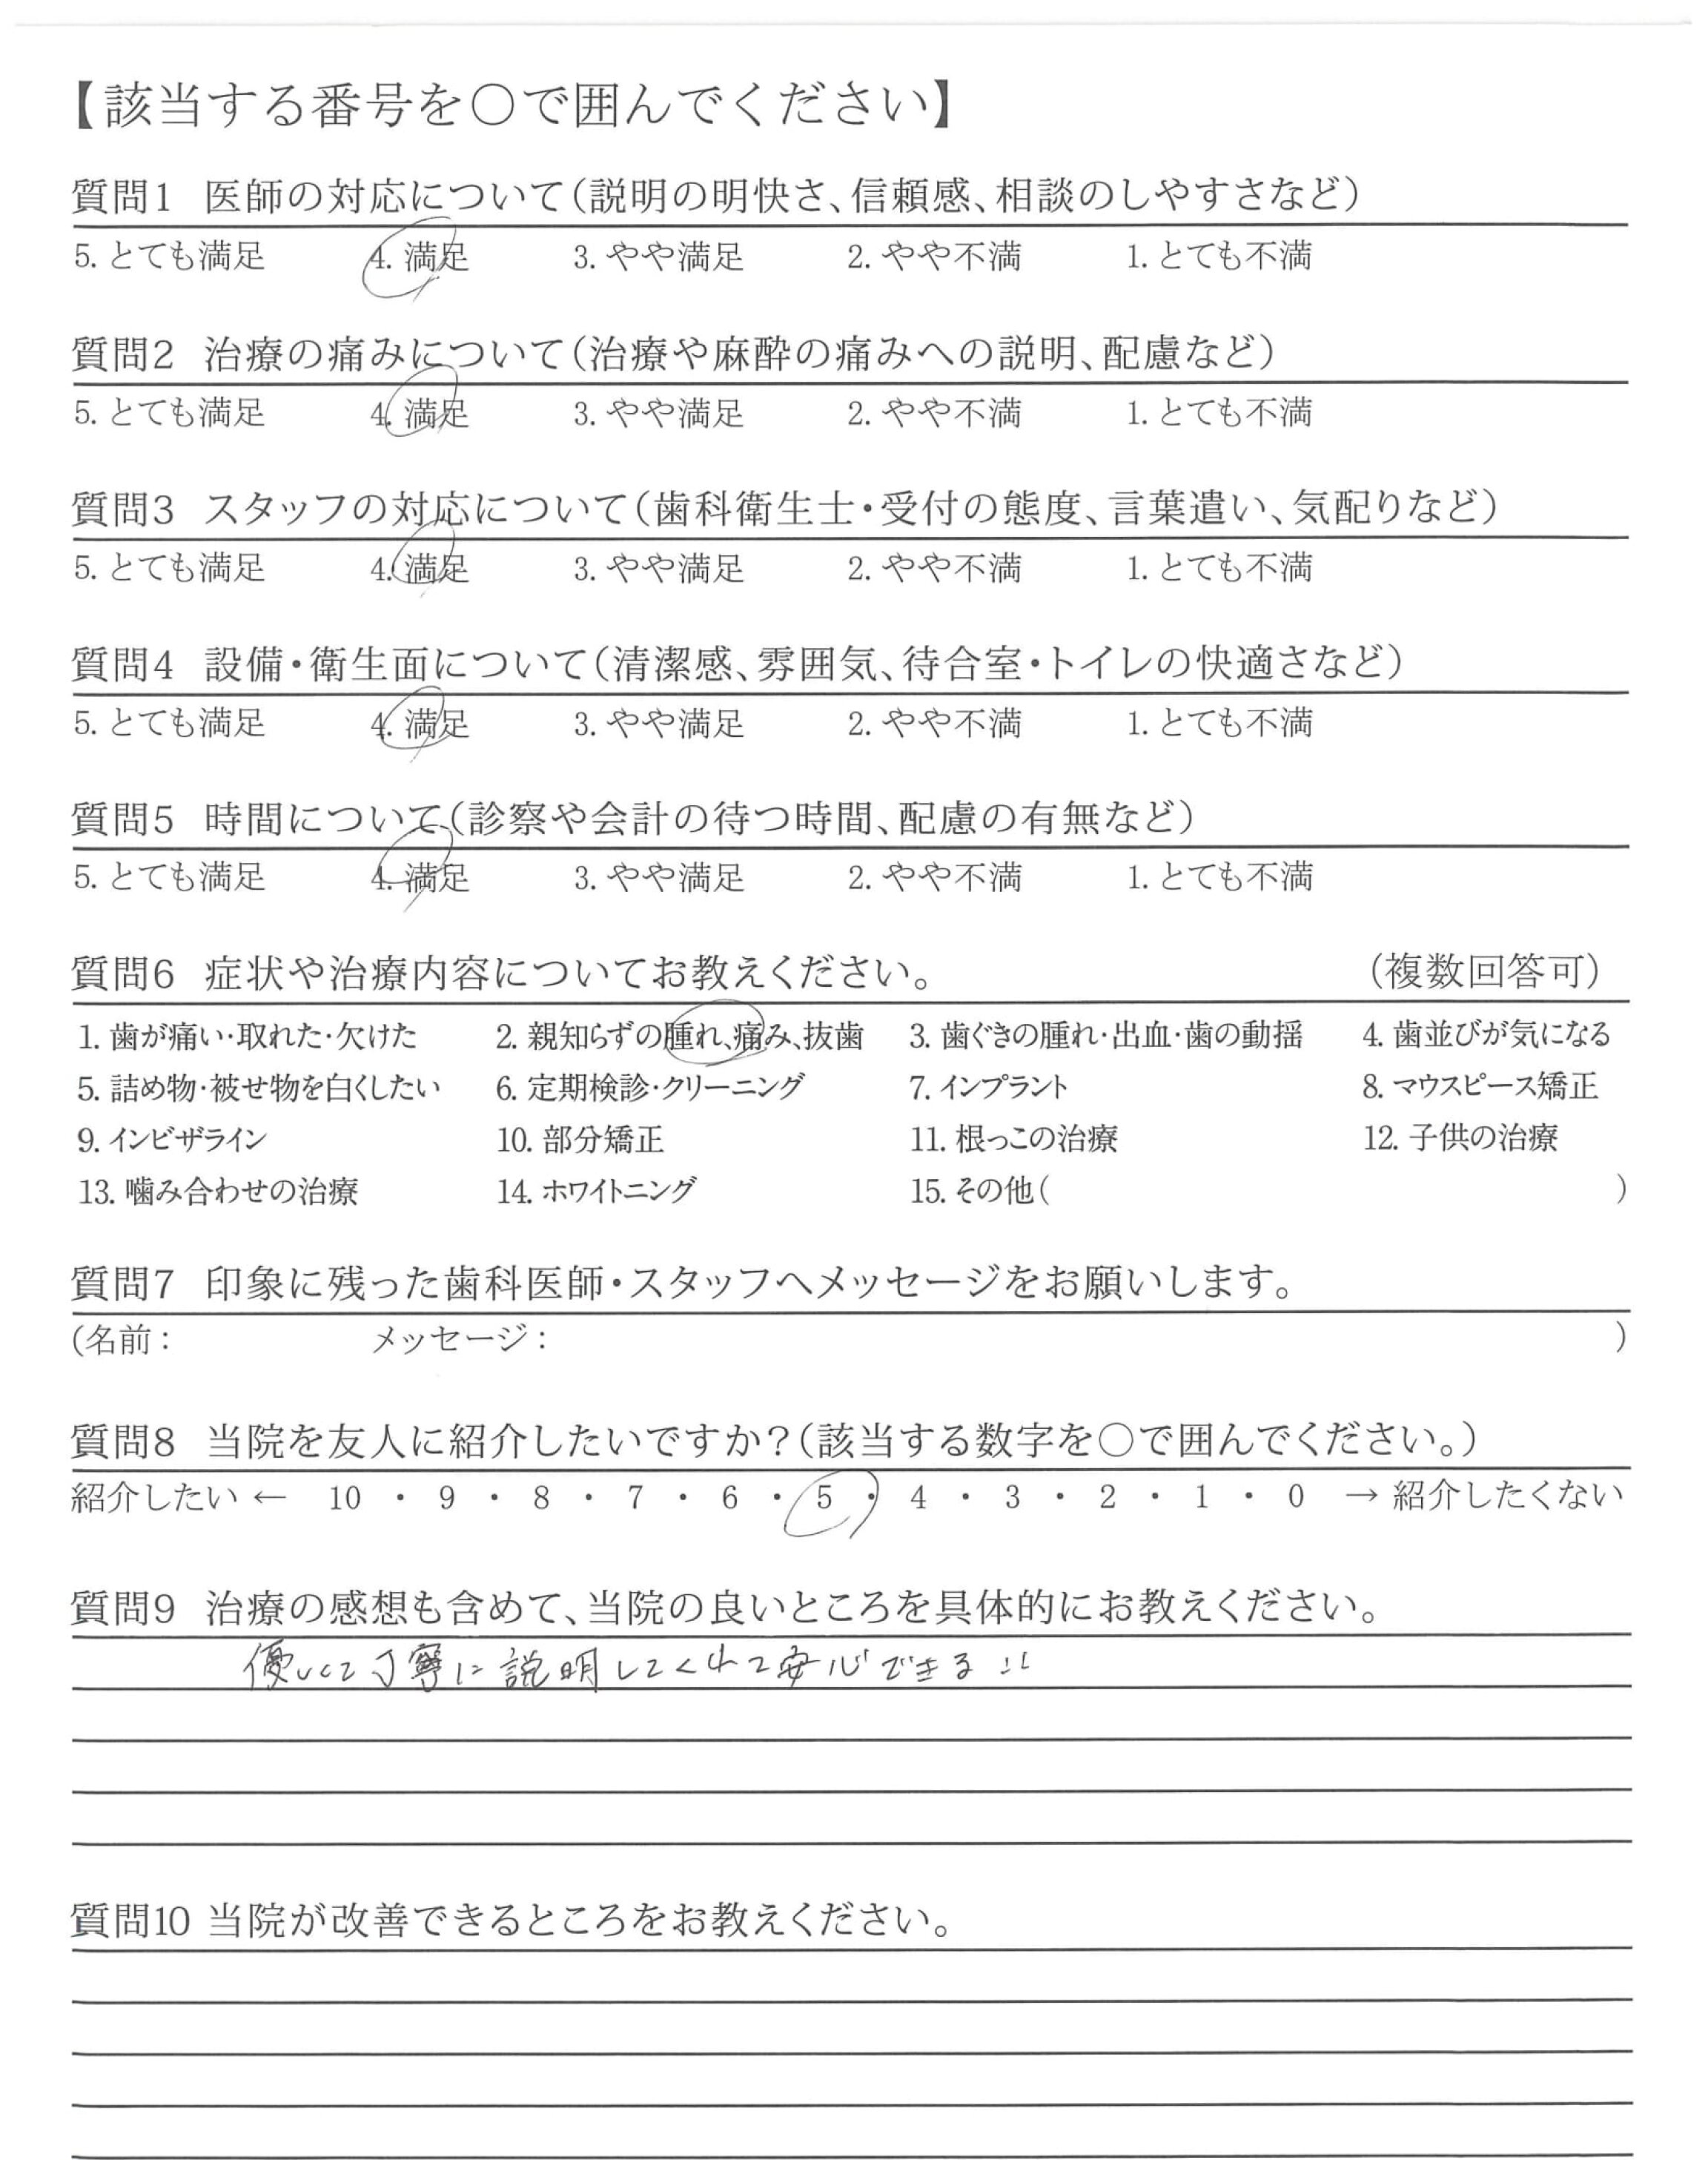 【該当する番号を○で囲んでください】
質問1 医師の対応について(説明の明快さ、信頼感、相談のしやすさなど)
5. とても満足 4. 満足 3. やや満足 2. やや不満 1. とても不満
質問2 治療の痛みについて(治療や麻酔の痛みへの説明、配慮など)
5. とても満足 4. 満足 3. やや満足 2. やや不満 1. とても不満
質問3 スタッフの対応について(歯科衛生士・受付の態度、言葉遣い、気配りなど)
5. とても満足 4. 満足 3. やや満足 2. やや不満 1. とても不満
質問4 設備・衛生面について(清潔感、雰囲気、待合室・トイレの快適さなど)
5. とても満足 4. 満足 3. やや満足 2. やや不満 1. とても不満
質問5 時間について(診察や会計の待つ時間、配慮の有無など)
5. とても満足 4. 満足 3. やや満足 2. やや不満 1. とても不満
質問6 症状や治療内容についてお教えください。 (複数回答可)
1. 歯が痛い・取れた・欠けた 2. 親知らずの腫れ、痛み、抜歯 3. 歯ぐきの腫れ・出血・歯の動揺 4. 歯並びが気になる
5. 詰め物・被せ物を白くしたい 6. 定期検診・クリーニング 7. インプラント 8. マウスピース矯正
9. インビザライン 10. 部分矯正 11. 根っこの治療 12. 子供の治療
13. 噛み合わせの治療 14. ホワイトニング 15. その他( )
質問7 印象に残った歯科医師・スタッフへメッセージをお願いします。
(名前: メッセージ: )
質問8 当院を友人に紹介したいですか?(該当する数字を○で囲んでください。)
紹介したい ← 10 ・ 9 ・ 8 ・ 7 ・ 6 ・ 5 ・ 4 ・ 3 ・ 2 ・ 1 ・ 0 → 紹介したくない
質問9 治療の感想も含めて、当院の良いところを具体的にお教えください。
優しくて丁寧に説明してくれて安心できる!!
質問10 当院が改善できるところをお教えください。